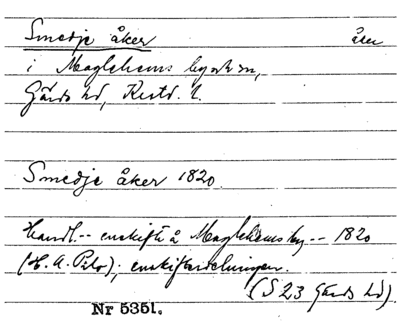 Smedje åker åker
i Maglehems by o sn,
Gärds hd, Krist. l.
Smedje åker 1820.
Handl.-- enskifte å Maglehems by -- 1820
(H. A. Pilo); enskiftesdelningen.
(S 23 Gärds hd)
Nr 5351.